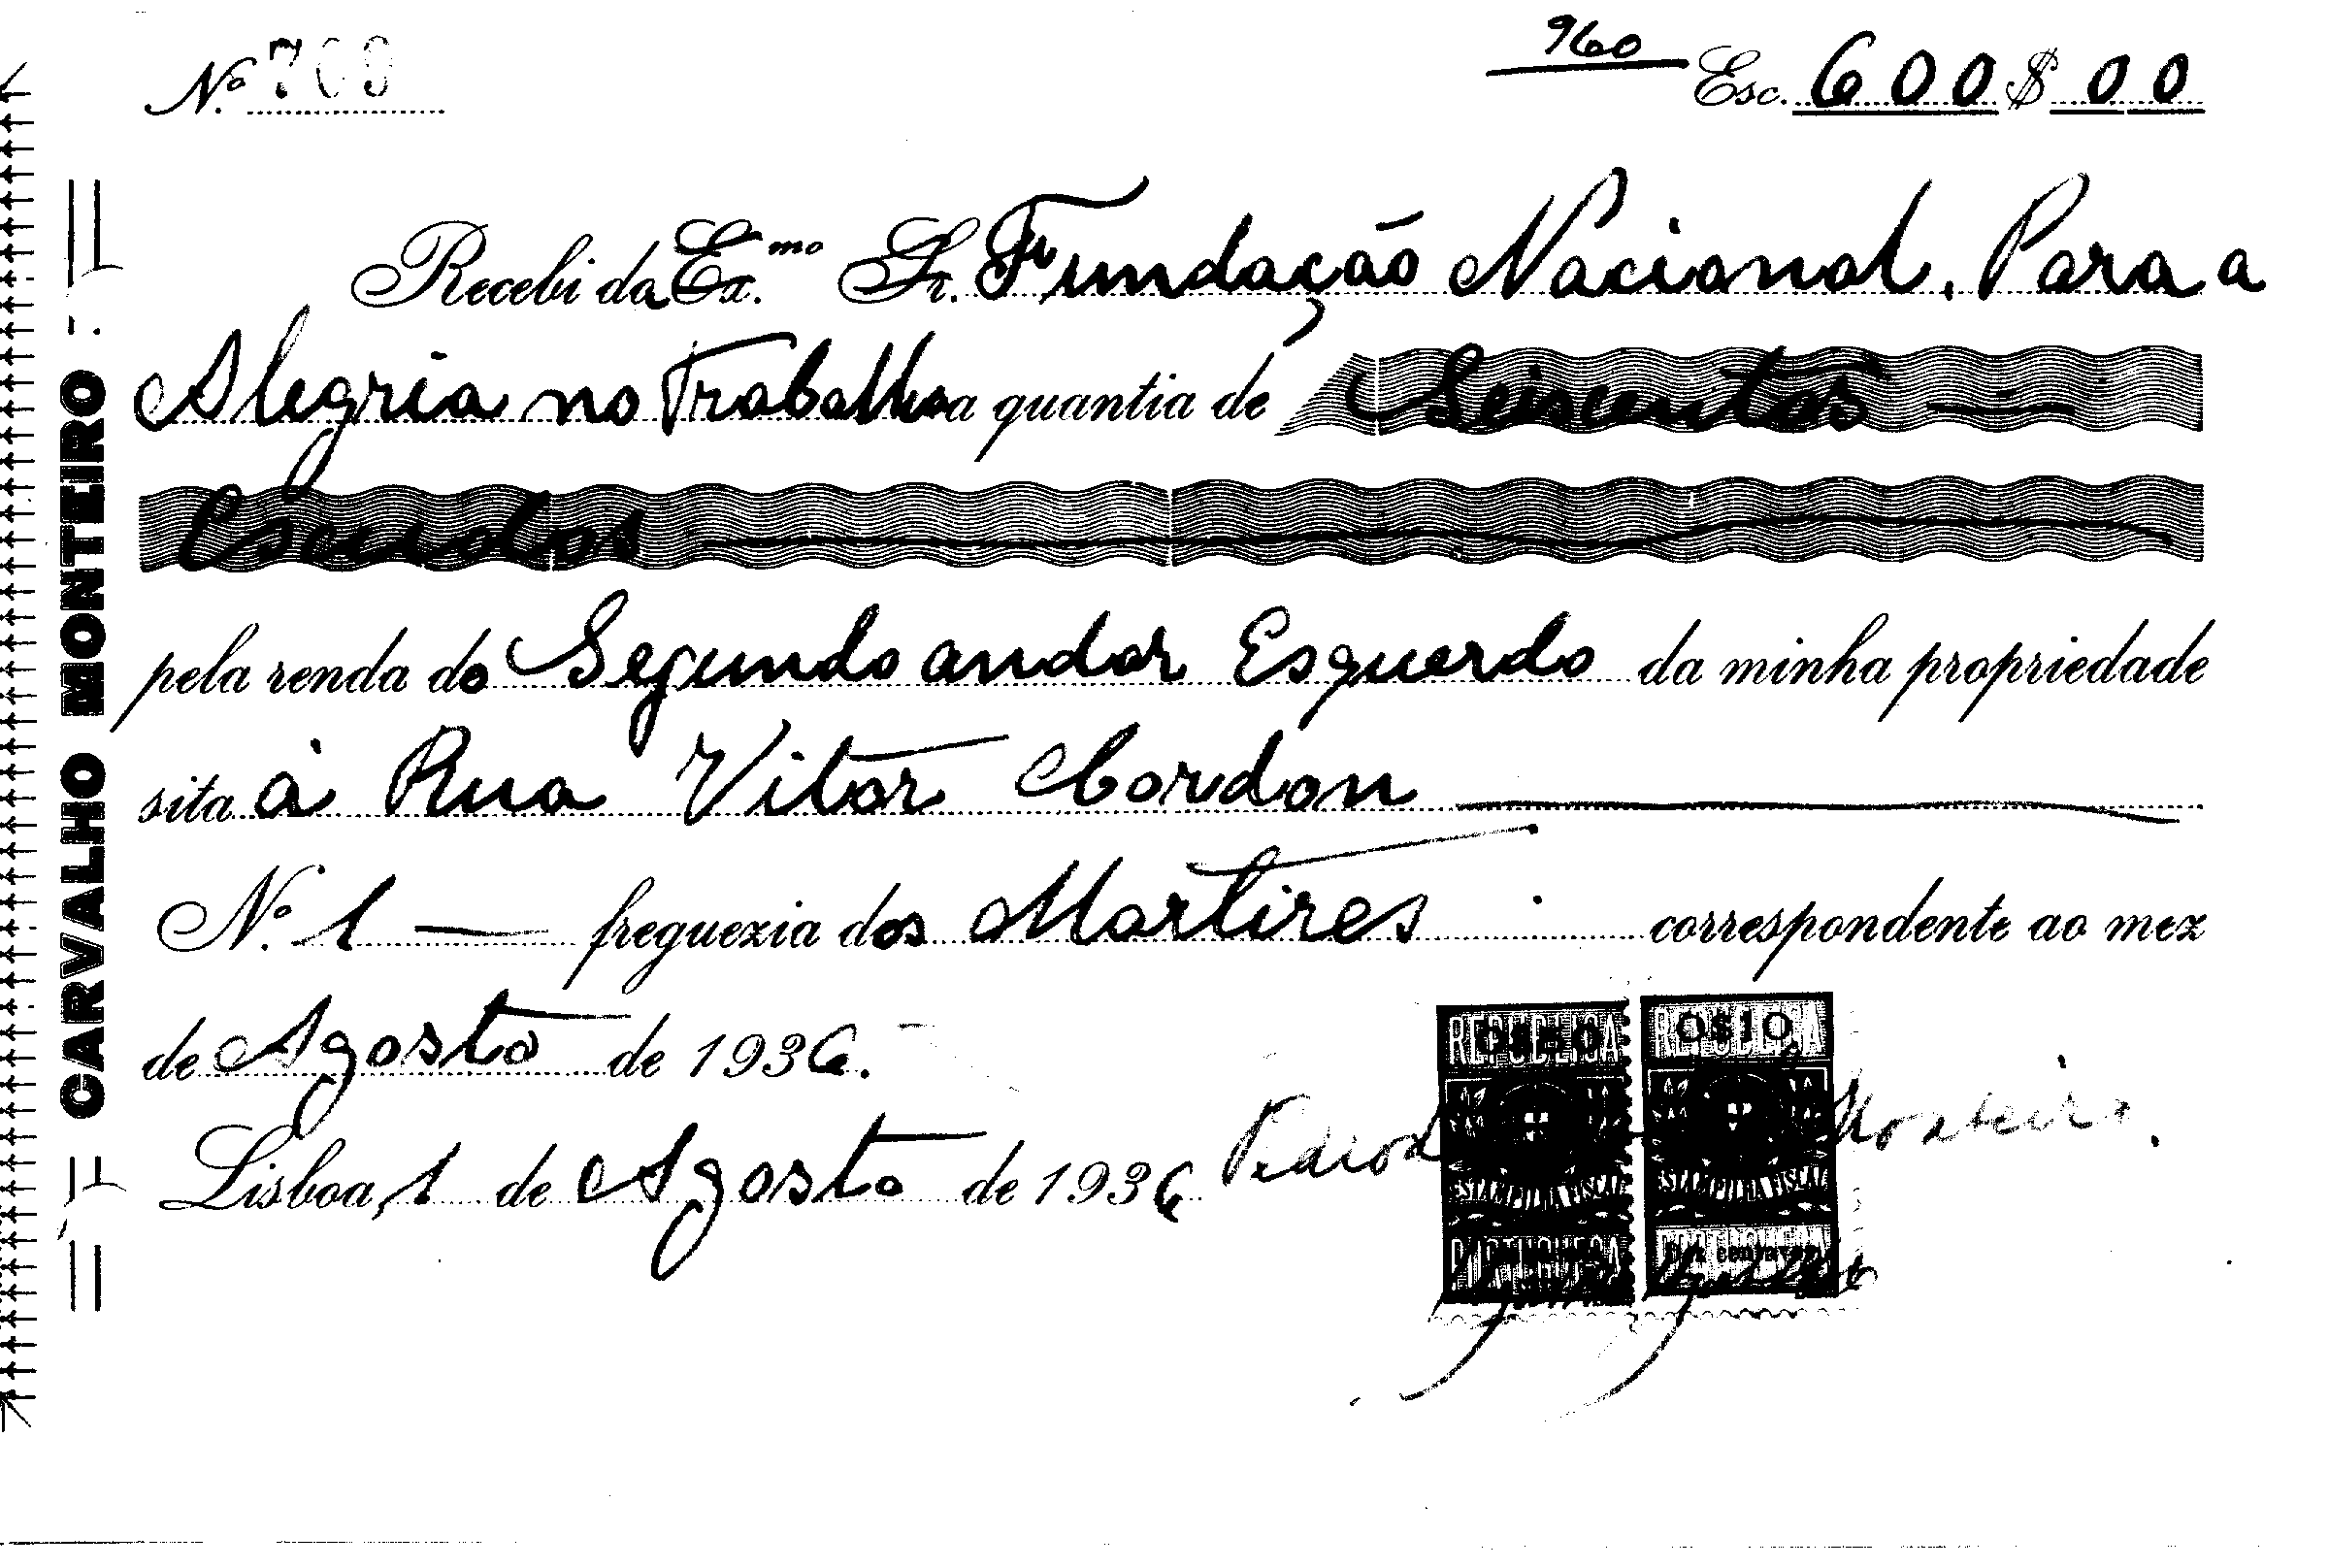 960
Nº 709 Esc. 600$00
Recebi da Ex.mo Sr. Fundação Nacional, Para a
Alegria no Trabalho a quantia de Seiscentos
Escudos
pela renda do Segundo andar Esquerdo da minha propriedade
sita à Rua Vitor Cordon
Nº 1 — freguezia dos Martires correspondente ao mez
de Agosto de 1936.
Lisboa, 1 de Agosto de 1936 Monteiro.
CARVALHO MONTEIRO
REPUBLICA REPUBLICA
0$10
ESTAMPILHA FISCAL ESTAMPILHA FISCAL
PORTUGUESA PORTUGUESA
Dez centavos